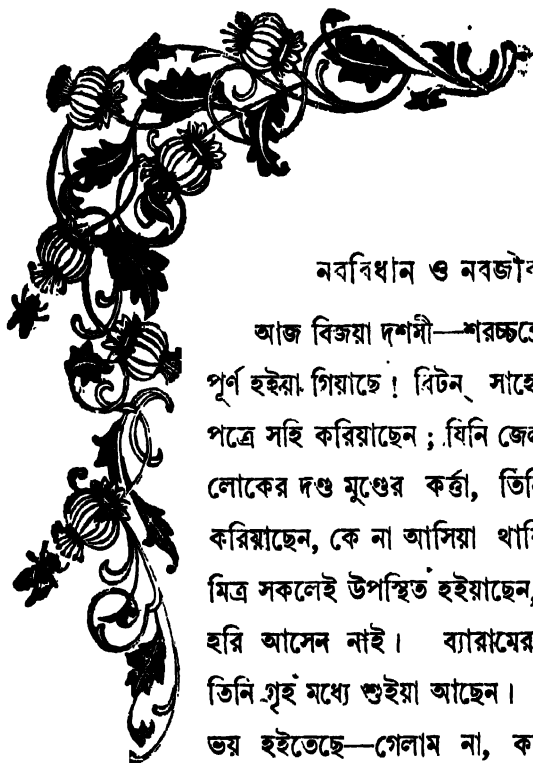 নববিধান ও নবজীব
আজ বিজয়া দশমী—শরচ্চন্দ্রে
পূর্ণ হইয়া গিয়াছে ! বিটন্ সাহে
পত্রে সহি করিয়াছেন ; যিনি জেল
লোকের দণ্ড মুণ্ডের কর্ত্তা, তিনি
করিয়াছেন, কে না আসিয়া থাকি
মিত্র সকলেই উপস্থিত হইয়াছেন,
হরি আসেন নাই । ব্যারামের
তিনি গৃহ মধ্যে শুইয়া আছেন ।
ভয় হইতেছে—গেলাম না, ক